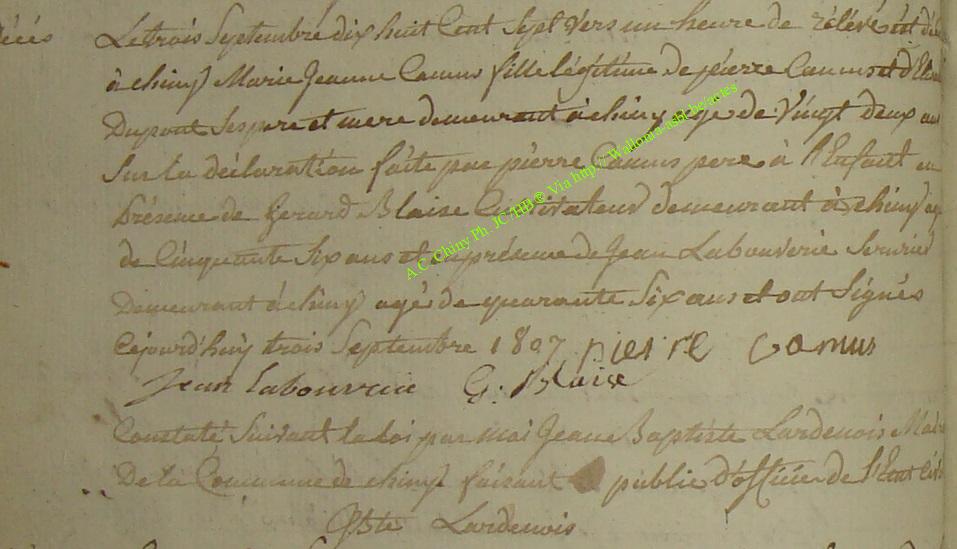 Le trois Septembre dix huit Cent Sept Vers un heure de rélévé est
écés
à chiny Marie Jeanne Camus fille légitime de pierre Camus et
Dupont Ses pere et mere demeurant à chiny age de Vingt deux
Sur la déclaration faite par pierre Camus pere à l'Enfant en
présence de Gerard Blaise Cultivateur demeurant à chiny
de Cinquante Six ans et en présence de Jean Labouverie Serurier
Demeurant à chiny agé de quarante Six ans et ont Signés
Cejourd'huy trois Septembre 1807 pierre camus
Jean labouverie G. Blaise
Constaté Suivant la loi par moi Jean Baptiste Lardenois
De la Commune de chiny faisant public d'officier de l'Etat
Lardenois
A.C. Chiny Ph. JC Via http://Wallonia-asbl.be/actes